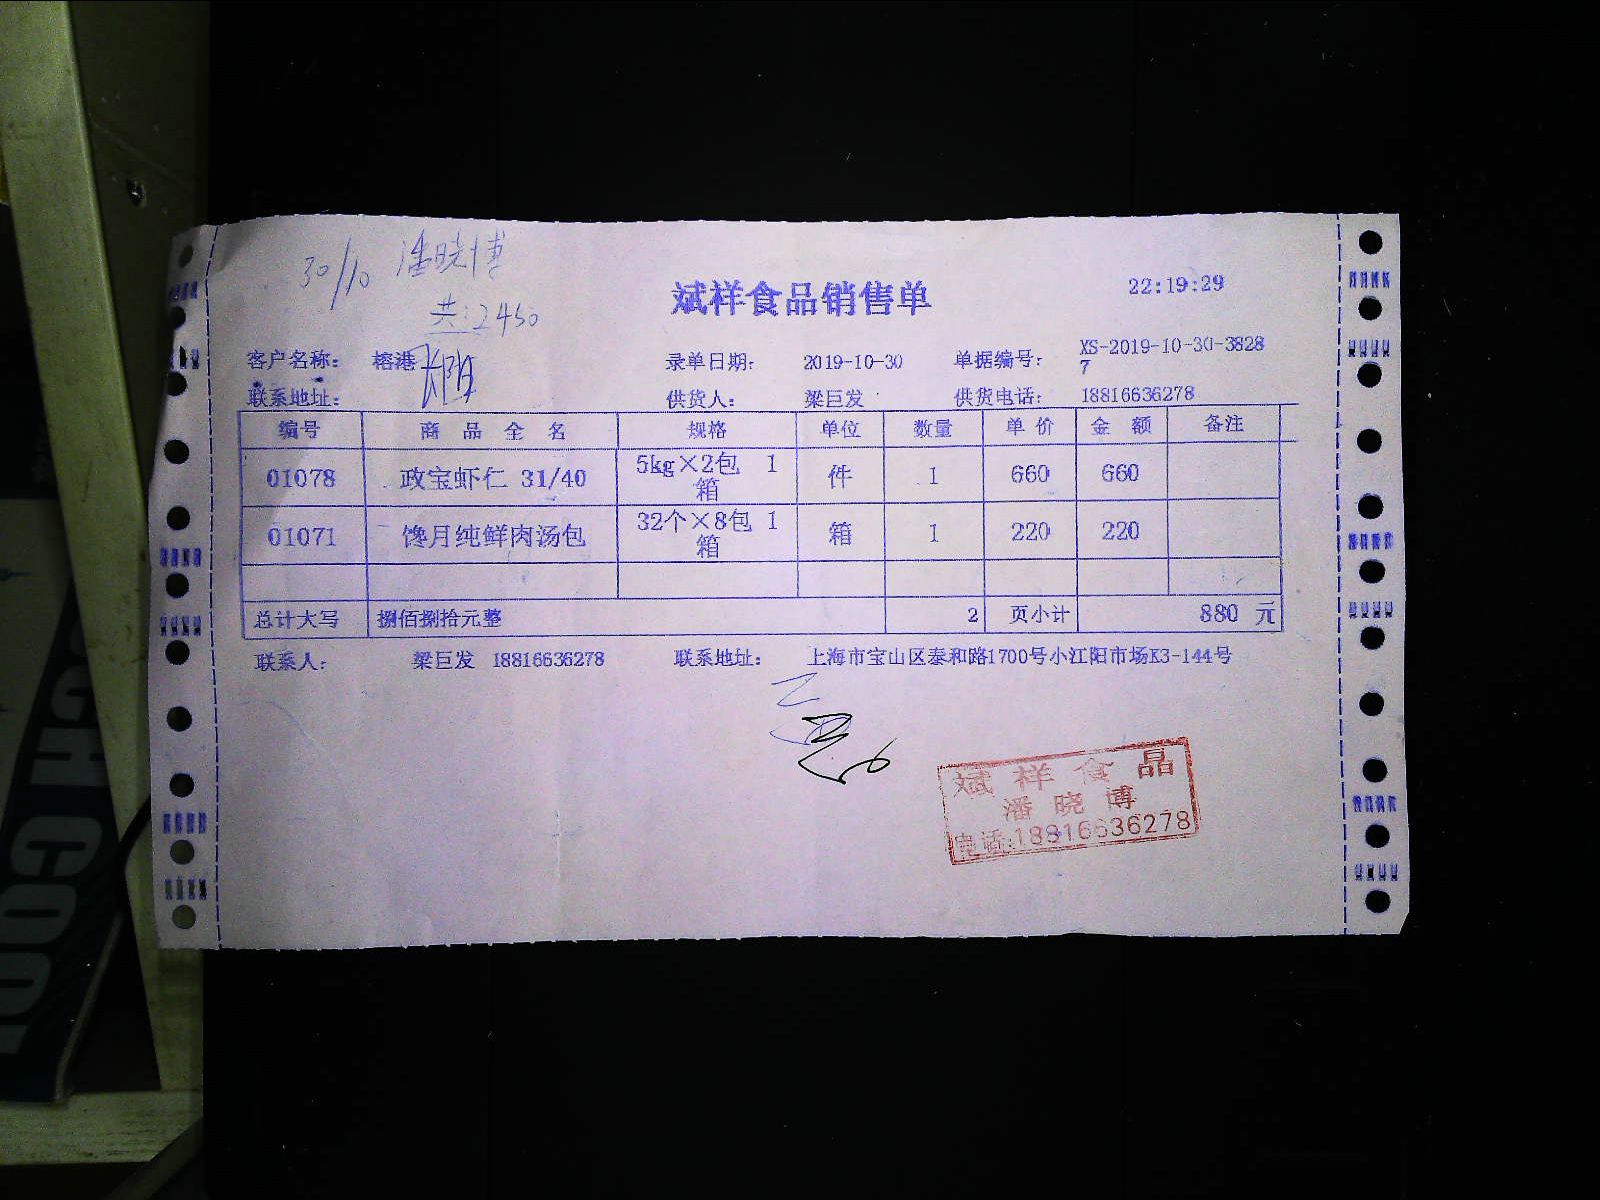 30/10 潘晓博
共:2450
斌祥食品销售单
22:19:29
客户名称: 榕港 录单日期: 2019-10-30 单据编号: XS-2019-10-30-38287
联系地址: 供货人: 梁巨发 供货电话: 18816636278
编号 商品全名 规格 单位 数量 单价 金额 备注
01078 政宝虾仁 31/40 5kg×2包 1箱 件 1 660 660
01071 馋月纯鲜肉汤包 32个×8包 1箱 箱 1 220 220
总计大写 捌佰捌拾元整 2 页小计 880 元
联系人: 梁巨发 18816636278 联系地址: 上海市宝山区泰和路1700号小江阳市场K3-144号
斌祥食品
潘晓博
电话:18816636278